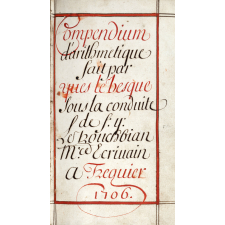 Compendium
d'arithmetique
fait par
yues le besque
sous la conduite
de
Me Ecriuain
a Treguier
1706.